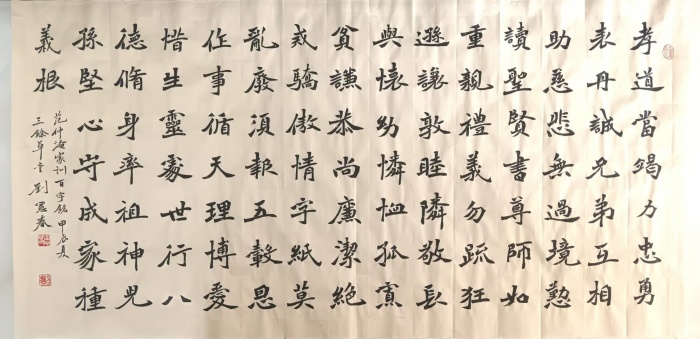 孝道當竭力忠勇
表丹誠兄弟互相
助慈悲無過境懃
讀聖賢書尊師如
重親禮義勿疏狂
遜讓敦睦隣敬長
與懷幼憐恤孤寡
貧謙恭尚廉潔絕
戒驕傲情字紙莫
亂廢須報五穀恩
作事循天理博愛
惜生靈處世行八
德脩身率祖神兒
孫堅心守成家種
義根
范仲淹家訓百字銘 甲辰夏
三餘草堂劉憲春